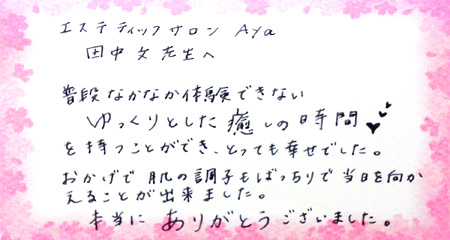 エステティックサロン Aya
田中文先生へ
普段なかなか体験できない
ゆっくりとした癒しの時間
を持つことができ、とっても幸せでした。
おかげで肌の調子もばっちりで当日を向か
えることが出来ました。
本当にありがとうございました。